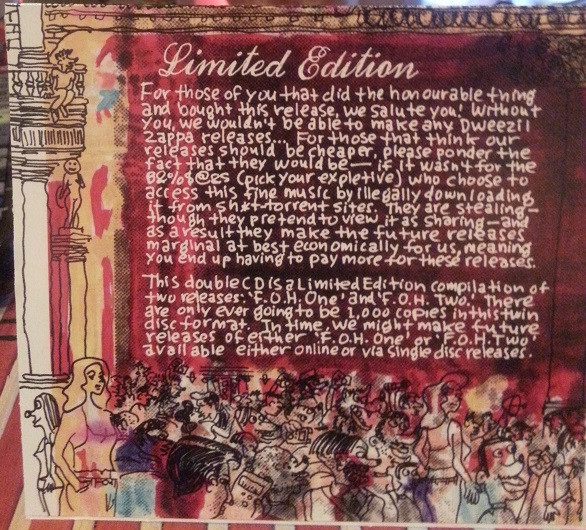 Limited Edition
For those of you that did the honourable thing
and bought this release, we salute you! Without
you, we wouldn't be able to make any Dweezil
Zappa releases. For those that think our
releases should be cheaper, please ponder the
fact that they would be – if it wasn't for the
(pick your expletive) who choose to
access this fine music by illegally downloading
it from sh*t-torrent sites. They are stealing –
though they pretend to view it as sharing – and
as a result they make the future releases
marginal at best economically for us, meaning
you end up having to pay more for these releases.
This double CD is a Limited Edition compilation of
two releases: 'F.O.H. One' and 'F.O.H. Two.' There
are only ever going to be 1,000 copies in this twin
disc format. In time, we might make future
releases of either 'F.O.H. One' or 'F.O.H. Two'
available either online or via single disc releases.